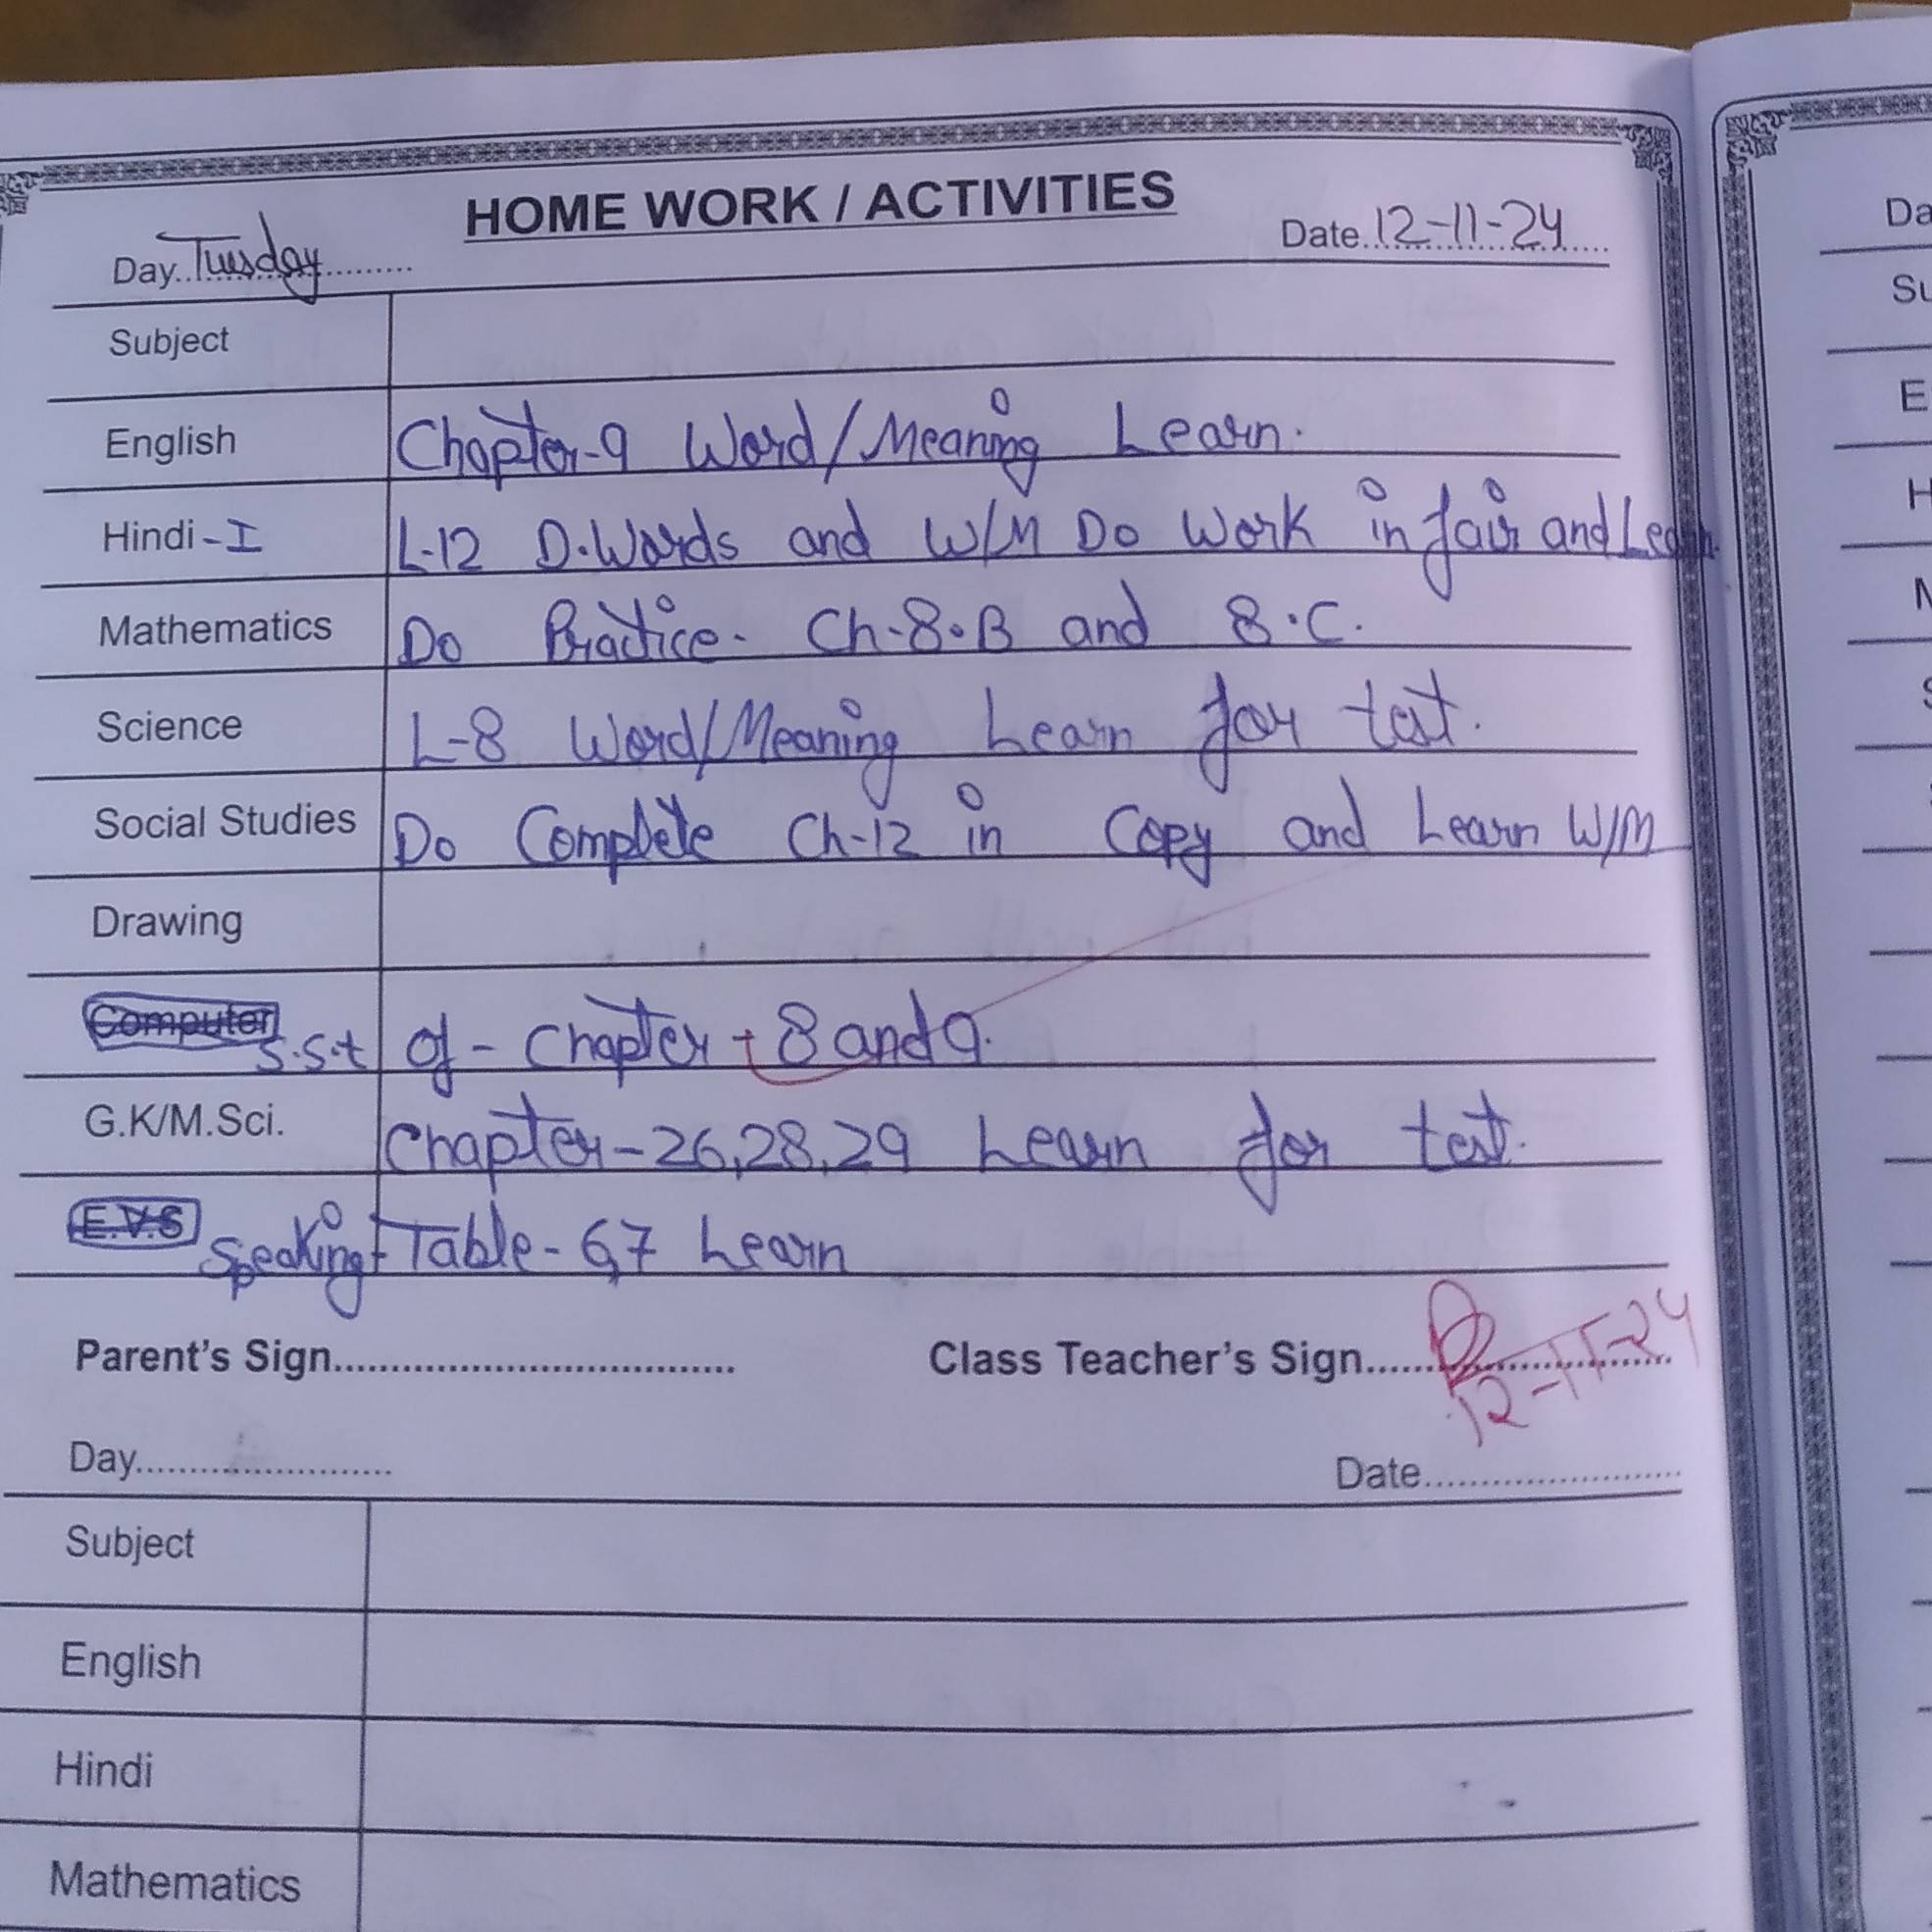 HOME WORK / ACTIVITIES
Day..Tuesday.......... Date..12-11-24......
Subject
English Chapter-9 Word/Meaning Learn.
Hindi-I L-12 D.Words and W/M Do Work in fair and Learn
Mathematics Do Practice- Ch-8.B and 8.C.
Science L-8 Word/Meaning Learn for test.
Social Studies Do Complete Ch-12 in Copy and Learn W/M
Drawing
Computer S.S.t of - Chapter - 8 and 9.
G.K/M.Sci. Chapter-26,28,29 Learn for test.
E.V.S Speaking- Table-6,7 Learn
Parent's Sign................................... Class Teacher's Sign.............................
12-11-24
Day........................ Date........................
Subject
English
Hindi
Mathematics
Da
Su
E
H
M
S